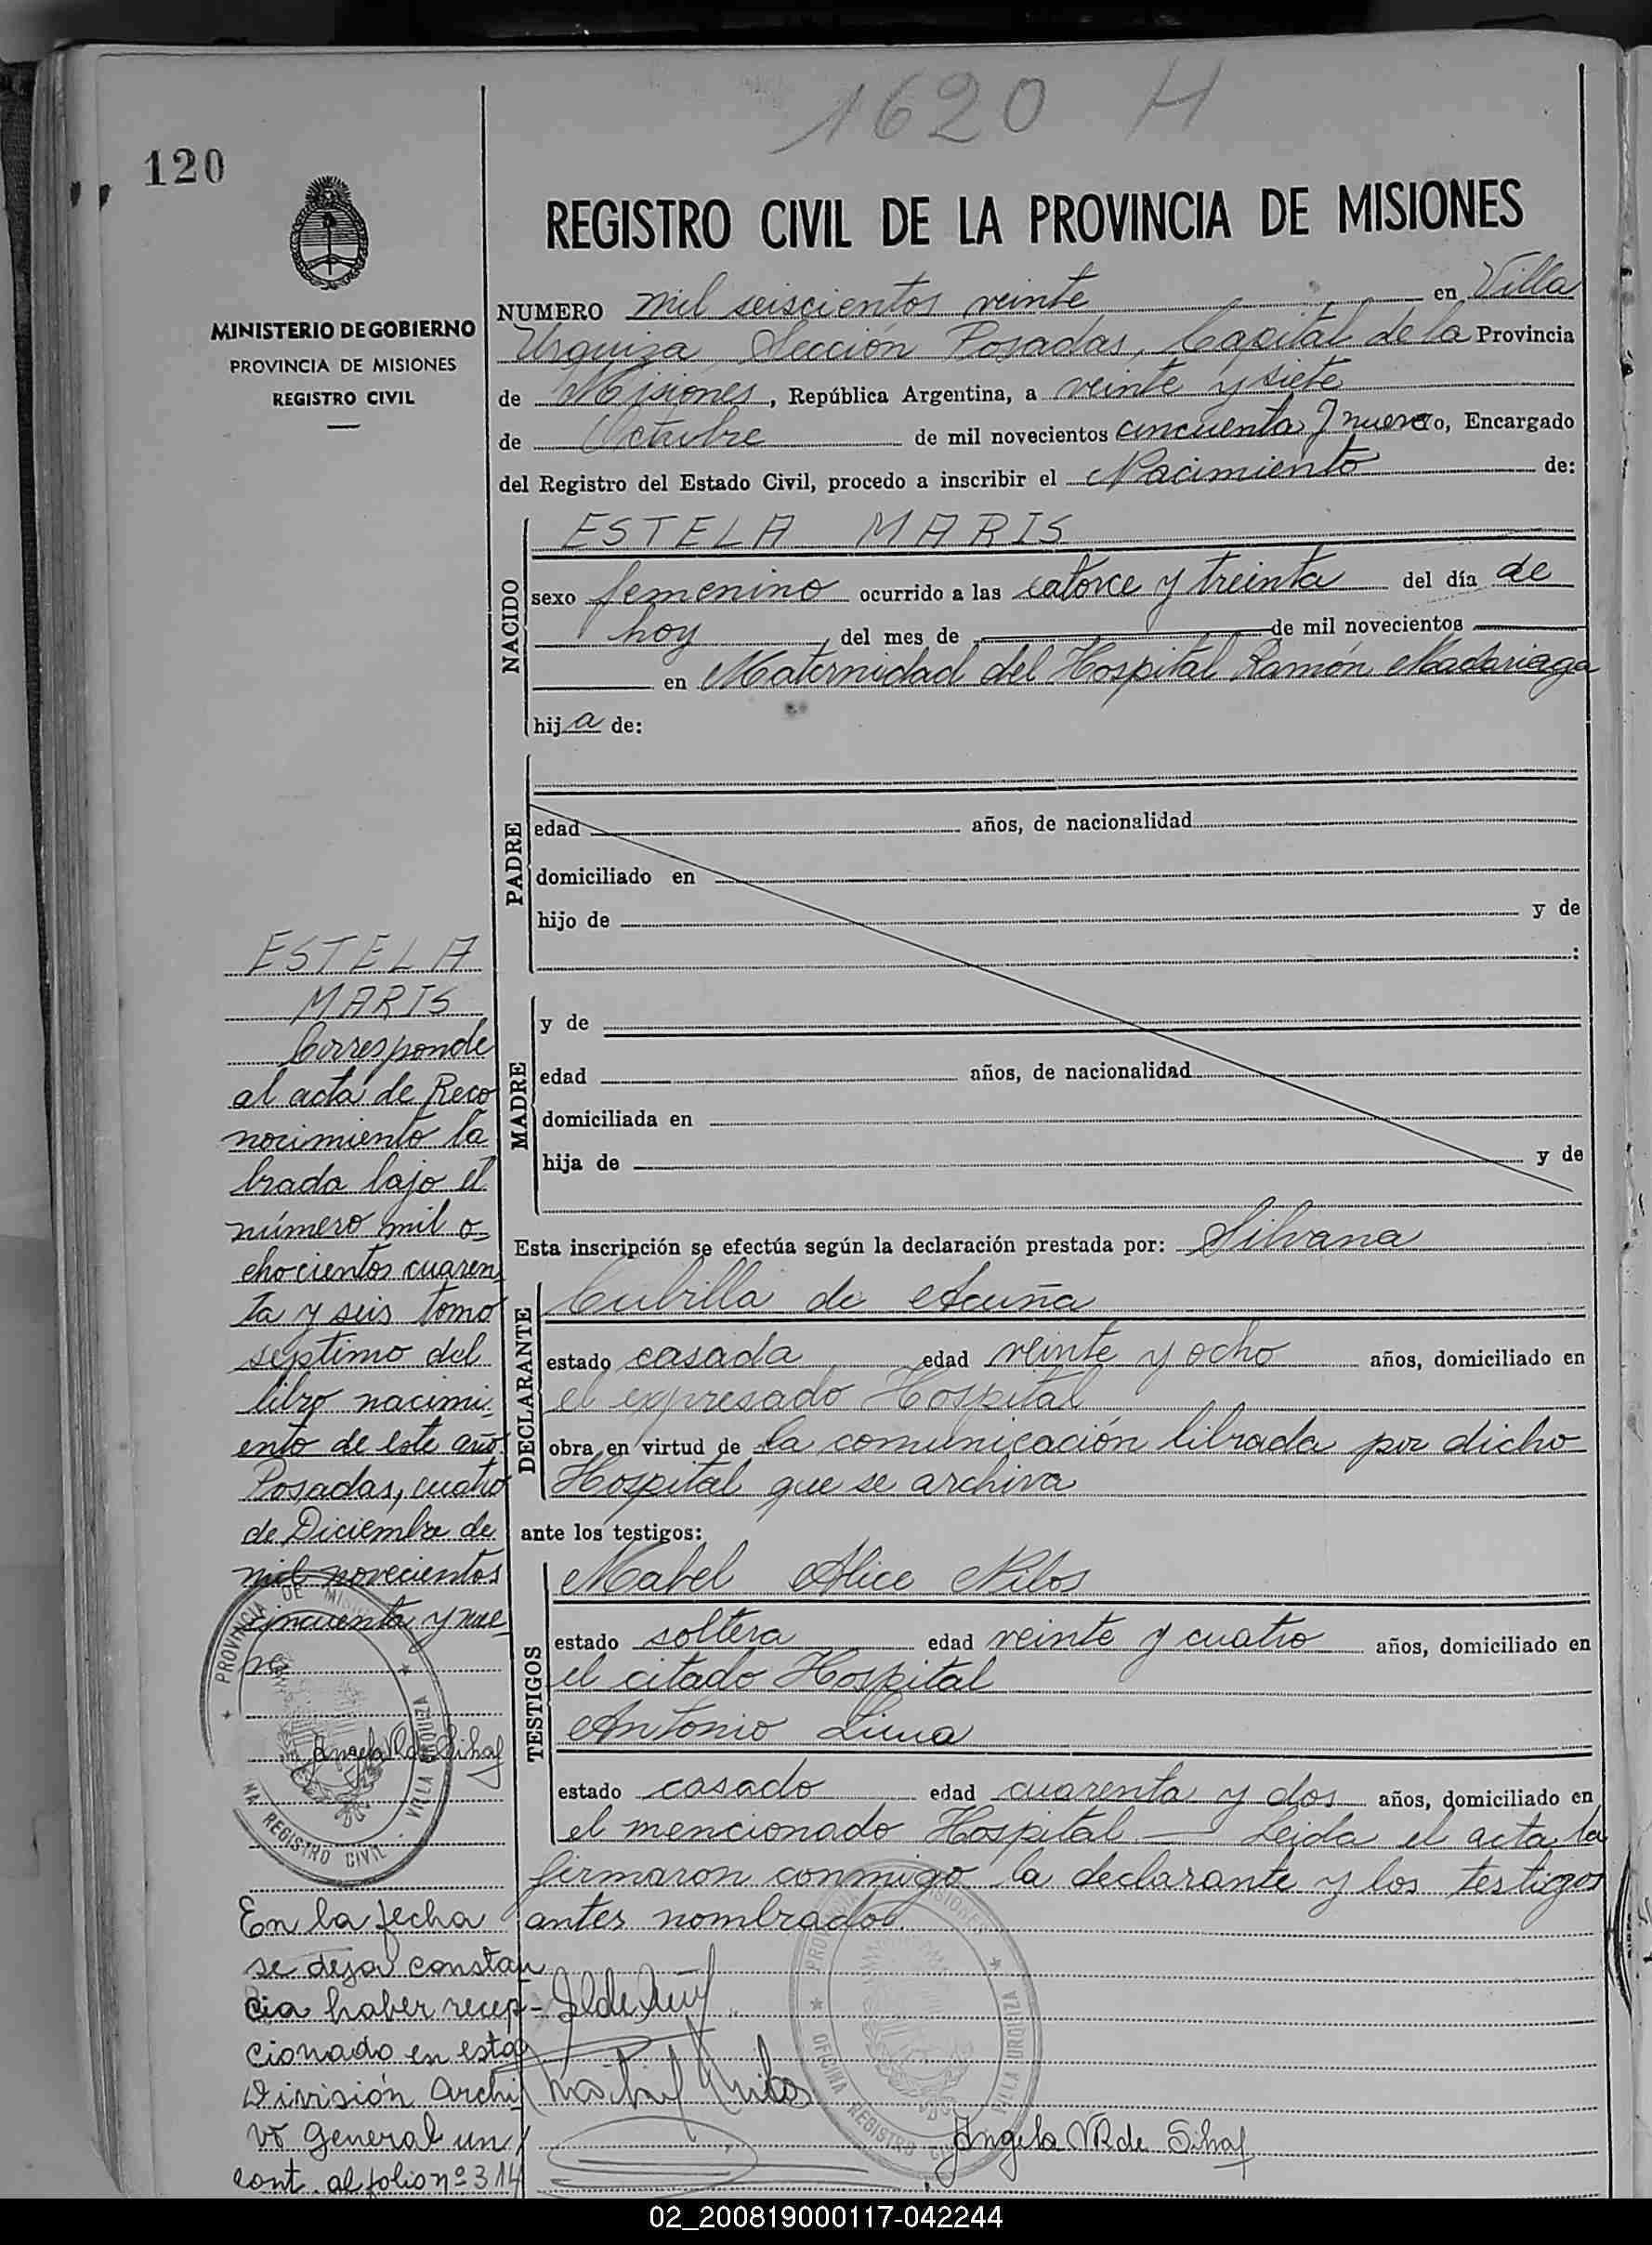 1620 H
120
REGISTRO CIVIL DE LA PROVINCIA DE MISIONES
MINISTERIO DE GOBIERNO
PROVINCIA DE MISIONES
REGISTRO CIVIL
NUMERO mil seiscientos veinte en Villa
Urquiza Sección Posadas, Capital de la Provincia
de Misiones, República Argentina, a veinte y siete
de Octubre de mil novecientos cincuenta y nueve, Encargado
del Registro del Estado Civil, procedo a inscribir el Nacimiento de:
NACIDO
ESTELA MARIS
sexo femenino ocurrido a las catorce y treinta del día de
hoy, del mes de de mil novecientos
en Maternidad del Hospital Ramón Madariaga
hija de:
PADRE
edad años, de nacionalidad
domiciliado en
hijo de y de
:
MADRE
y de
edad años, de nacionalidad
domiciliada en
hija de y de
Esta inscripción se efectúa según la declaración prestada por: Silvana
DECLARANTE
Cubilla de Acuña
estado casada edad veinte y ocho años, domiciliado en
el expresado Hospital
obra en virtud de la comunicación librada por dicho
Hospital que se archiva
ante los testigos:
TESTIGOS
Mabel Alice
estado soltera edad veinte y cuatro años, domiciliado en
el citado Hospital
Antonio
estado casado edad cuarenta y dos años, domiciliado en
el mencionado Hospital — Leida el acta la
firmaron conmigo la declarante y los testigos
antes nombrados.
Angela R de
ESTELA
MARIS
Corresponde
al acta de Reco
nocimiento la
brada bajo el
número mil o=
chocientos cuaren
ta y seis tomo
septimo del
libro nacimi
ento de este año
Posadas, cuatro
de Diciembre de
mil novecientos
cincuenta y nue
ve
Angela R de
PROVINCIA DE MISIONES
VILLA URQUIZA
REGISTRO CIVIL
En la fecha
se deja constan
cia haber recep=
cionado en esta
División Archi
vo General un
cont. al folio nº 314
PROVINCIA MISIONES
VILLA URQUIZA
OFICINA REGISTRO CIVIL
02_200819000117-042244